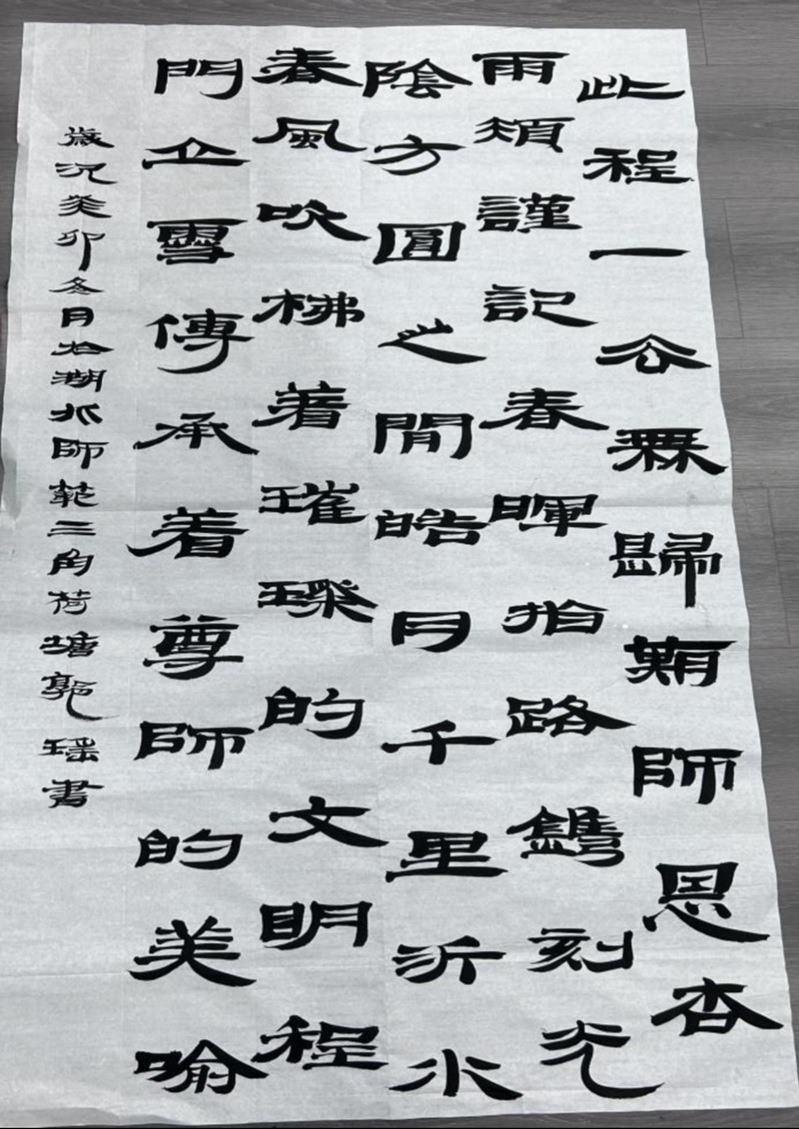 此程一去無歸期師恩杏
雨須謹記春暉柏路鐫刻光
陰方圓之間皓月千里沂水
春風吹拂着璀璨的文明程
門立雪傳承着尊師的美喻
歲次癸卯冬月於湖北師範三角荷塘郭瑤書